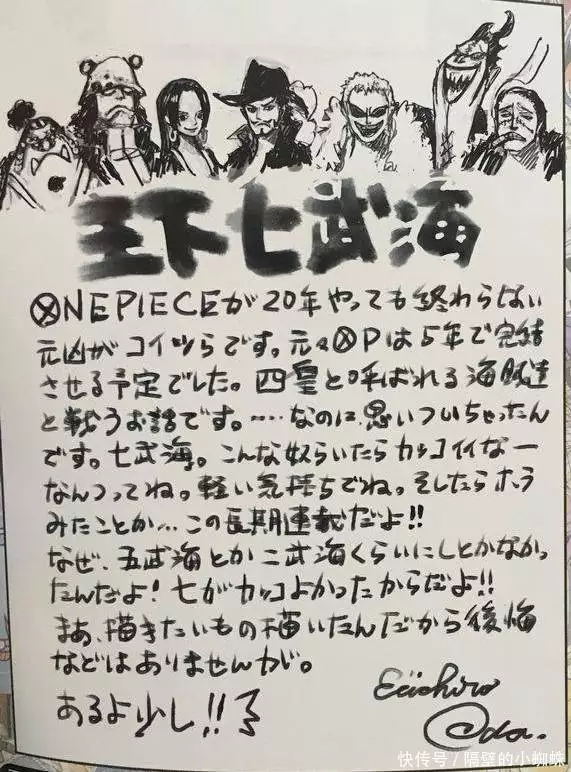 王下七武海
ⓍNE PIECEが20年やっても終わらない
元凶がコイツらです。元々ⓍPは5年で完結
させる予定でした。四皇と呼ばれる海賊達
と戦うお話です。……なのに、思いついちゃったん
です。七武海。こんな奴らいたらカッコイイなー
なんつってね。軽い気持ちでね。そしたらホラ
みたことか…この長期連載だよ!!
なぜ、五武海とか二武海くらいにしとかなかっ
たんだよ!七がカッコよかったからだよ!!
まあ、描きたいもの描いたんだから後悔
などはありませんが。
あるよ少し!!
Eiichiro
Oda.
快传号/隔壁的小蜘蛛